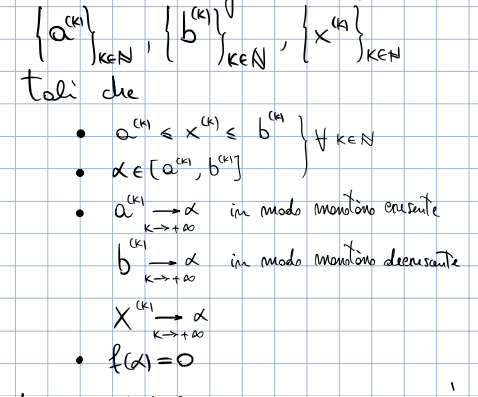 {a^(k)}_{k∈ℕ}, {b^(k)}_{k∈ℕ}, {x^(k)}_{k∈ℕ}
tali che
• a^(k) ≤ x^(k) ≤ b^(k) } ∀ k∈ℕ
• α ∈ [a^(k), b^(k)]
• a^(k) ⟶_{k→+∞} α in modo monotòno crescente
b^(k) ⟶_{k→+∞} α in modo monotòno decrescente
x^(k) ⟶_{k→+∞} α
• f(α)=0